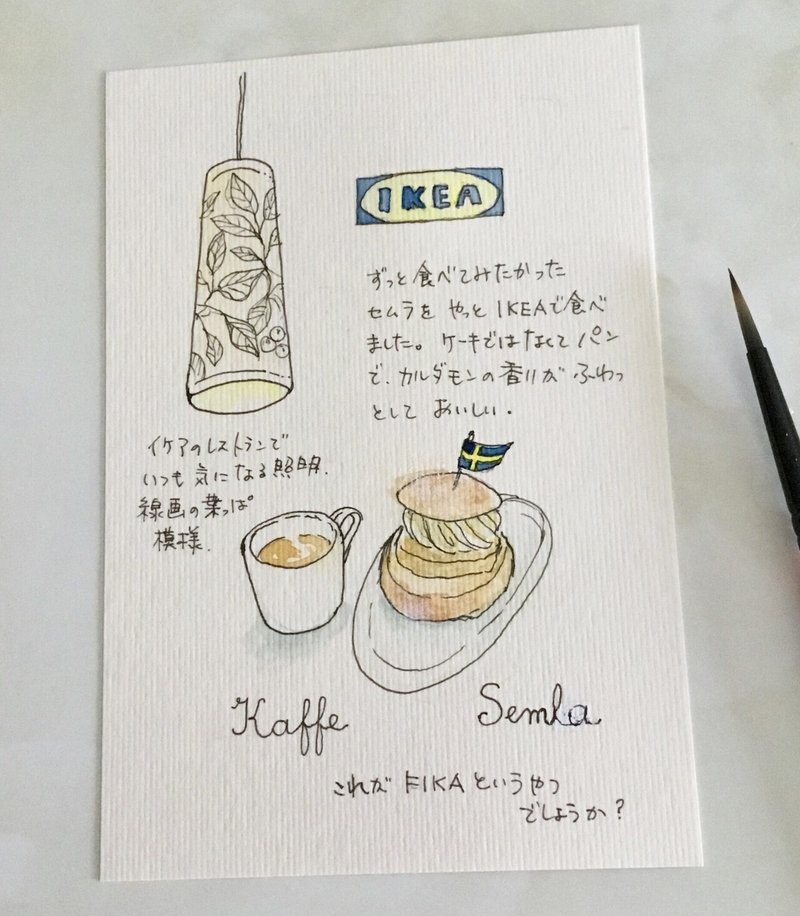 IKEA
ずっと食べてみたかった
セムラを やっと IKEAで食べ
ました。ケーキではなくて パン
で、カルダモンの香りが ふわっ
として おいしい.
イケアのレストランで
いつも気になる照明.
線画の葉っぱ
模様.
Kaffe
Semla
これが FIKA というやつ
でしょうか?